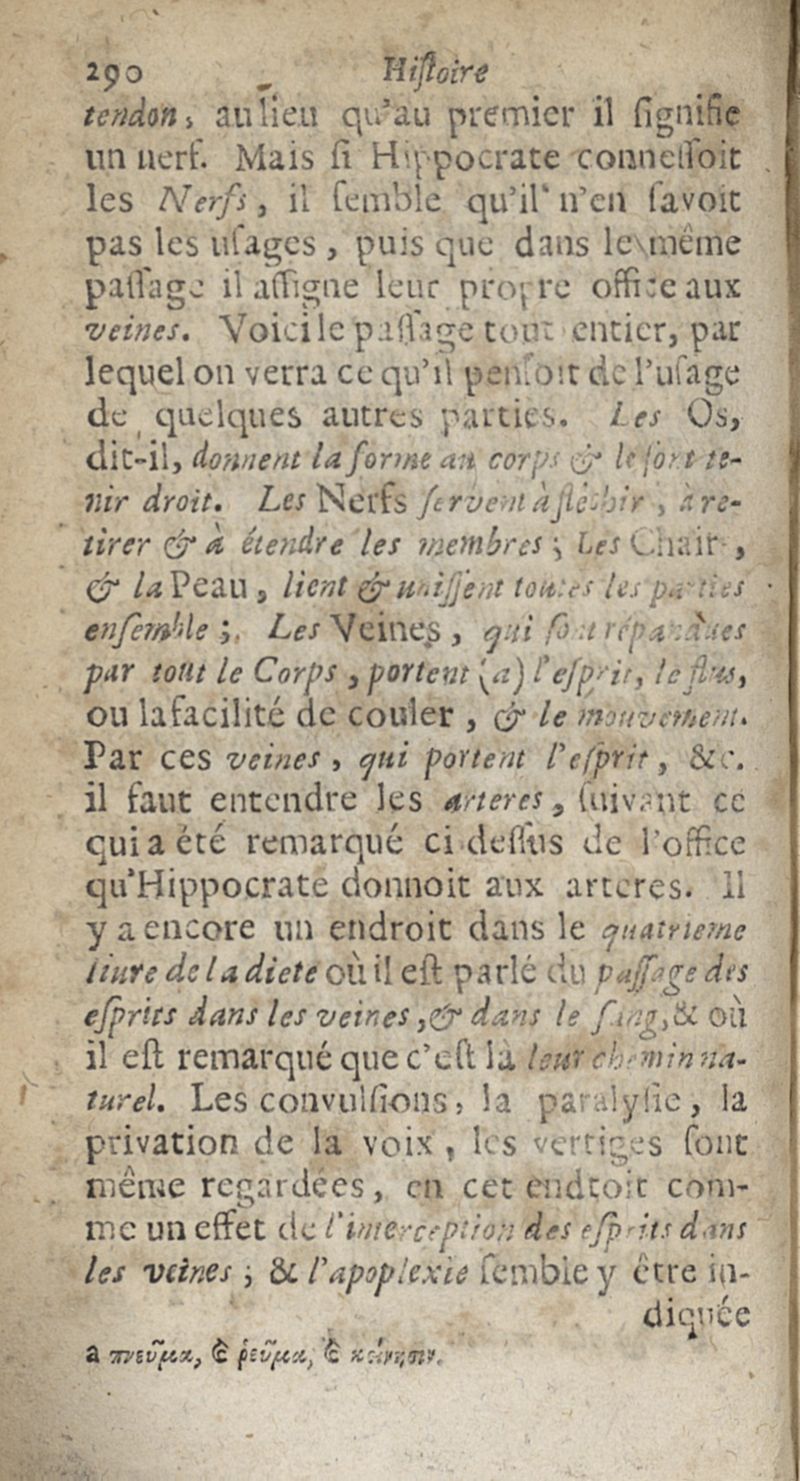 290 Hiſtoire
tendon; au lieu qu'au premier il ſignifie
un nerf. Mais ſi Hippocrate connoiſſoit
les Nerfs, il ſemble qu'il n'en ſavoit
pas les uſages, puis que dans le même
paſſage il aſſigne leur propre office aux
veines. Voici le paſſage tout entier, par
lequel on verra ce qu'il penſoit de l'uſage
de quelques autres parties. Les Os,
dit-il, donnent la forme au corps & le font te-
nir droit. Les Nerfs ſervent à fléchir, à re-
tirer & à étendre les membres; Les Chair,
& la Peau, lient & uniſſent toutes les parties
enſemble; Les Veines, qui ſont répandues
par tout le Corps, portent (a) l'eſprit, le flus,
ou la facilité de couler, & le mouvement.
Par ces veines, qui portent l'eſprit, &c.
il faut entendre les arteres, ſuivant ce
qui a été remarqué ci-deſſus de l'office
qu'Hippocrate donnoit aux arteres. Il
y a encore un endroit dans le quatrieme
livre de la diete où il eſt parlé du paſſage des
eſprits dans les veines, & dans le ſang, & où
il eſt remarqué que c'eſt là leur chemin na-
turel. Les convulſions, la paralyſie, la
privation de la voix, les vertiges ſont
même regardées, en cet endroit com-
me un effet de l'interception des eſprits dans
les veines; & l'apoplexie ſemble y être in-
diquée
a πνεῦμα, & ῥεῦμα, & κίνησιν.